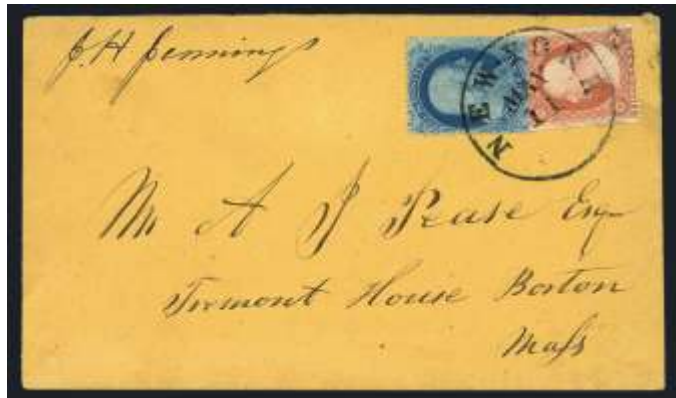 J. H Jennings
NEW YORK
11
Mr A J Pease Esq
Tremont House Boston
Mass